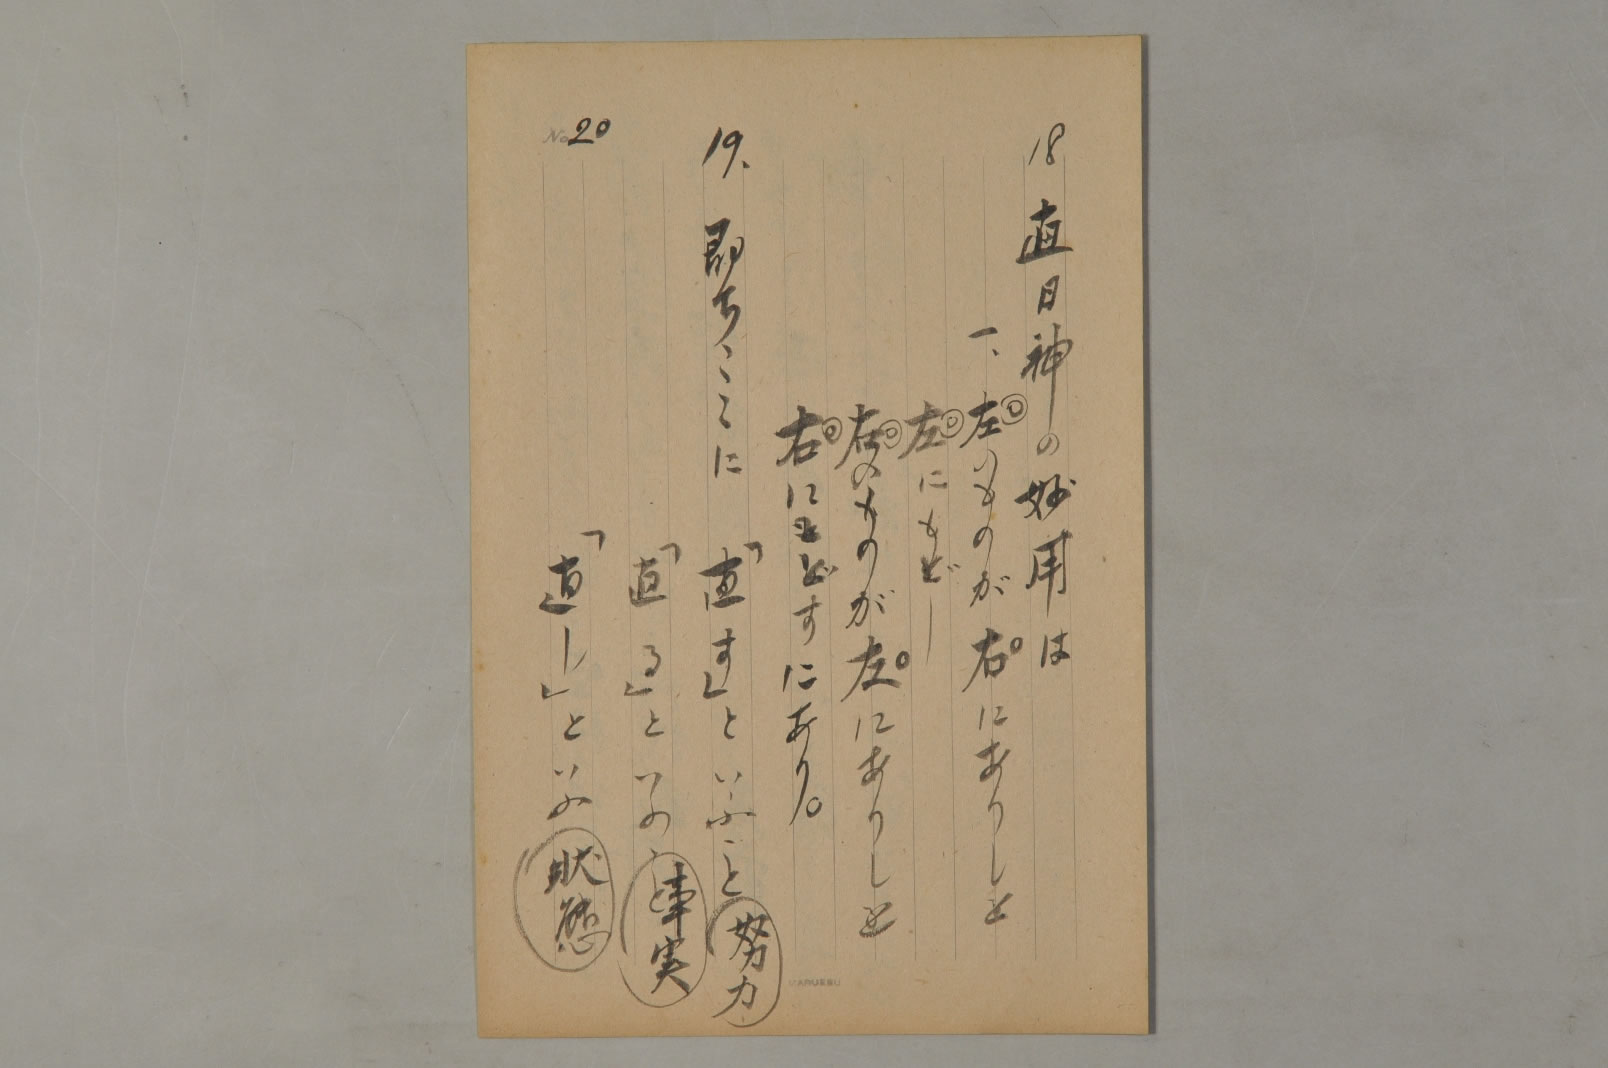 18 直日神の妙用は
一、左のものが右にありしと
左にもどし
右のものが左にありしと
右にもどすにあり。
19. 即ちここに
「直す」といふこと 努力
「直る」といふこと 事実
「直し」といふ 状態
No. 20
MARUESU